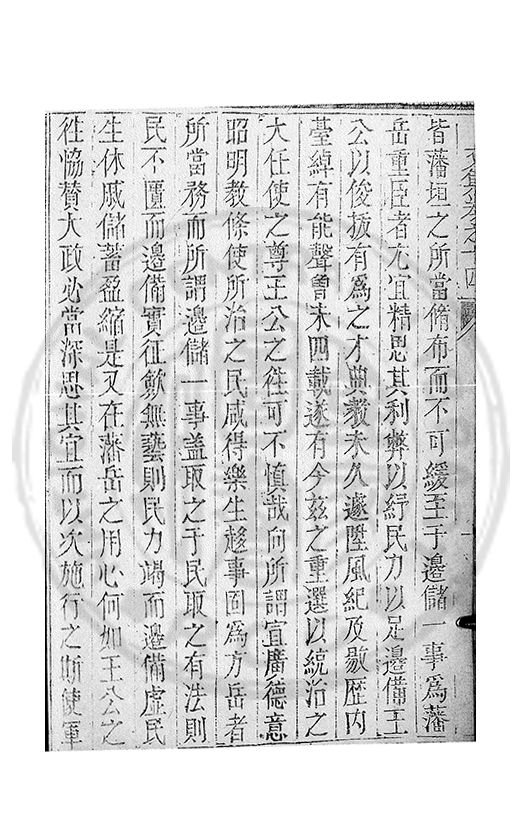 皆藩垣之所當脩布而不可緩至于邊儲一事爲藩
岳重臣者尤宜精思其利弊以紓民力以足邊備王
公以俊拔有爲之才典教未久遂陞風紀及敭歷内
臺綽有能聲曾未四載遂有今兹之重選以統治之
大任使之尊王公之往可不慎哉向所謂宣廣德意
昭明教條使所治之民咸得樂生趍事固爲方岳者
所當務而所謂邊儲一事盖取之于民取之有法則
民不匱而邊備實征歛無藝則民力竭而邊備虛民
生休戚儲蓄盈縮是又在藩岳之用心何如王公之
徃恊賛大政必當深思其宜而以次施行之斯使軍